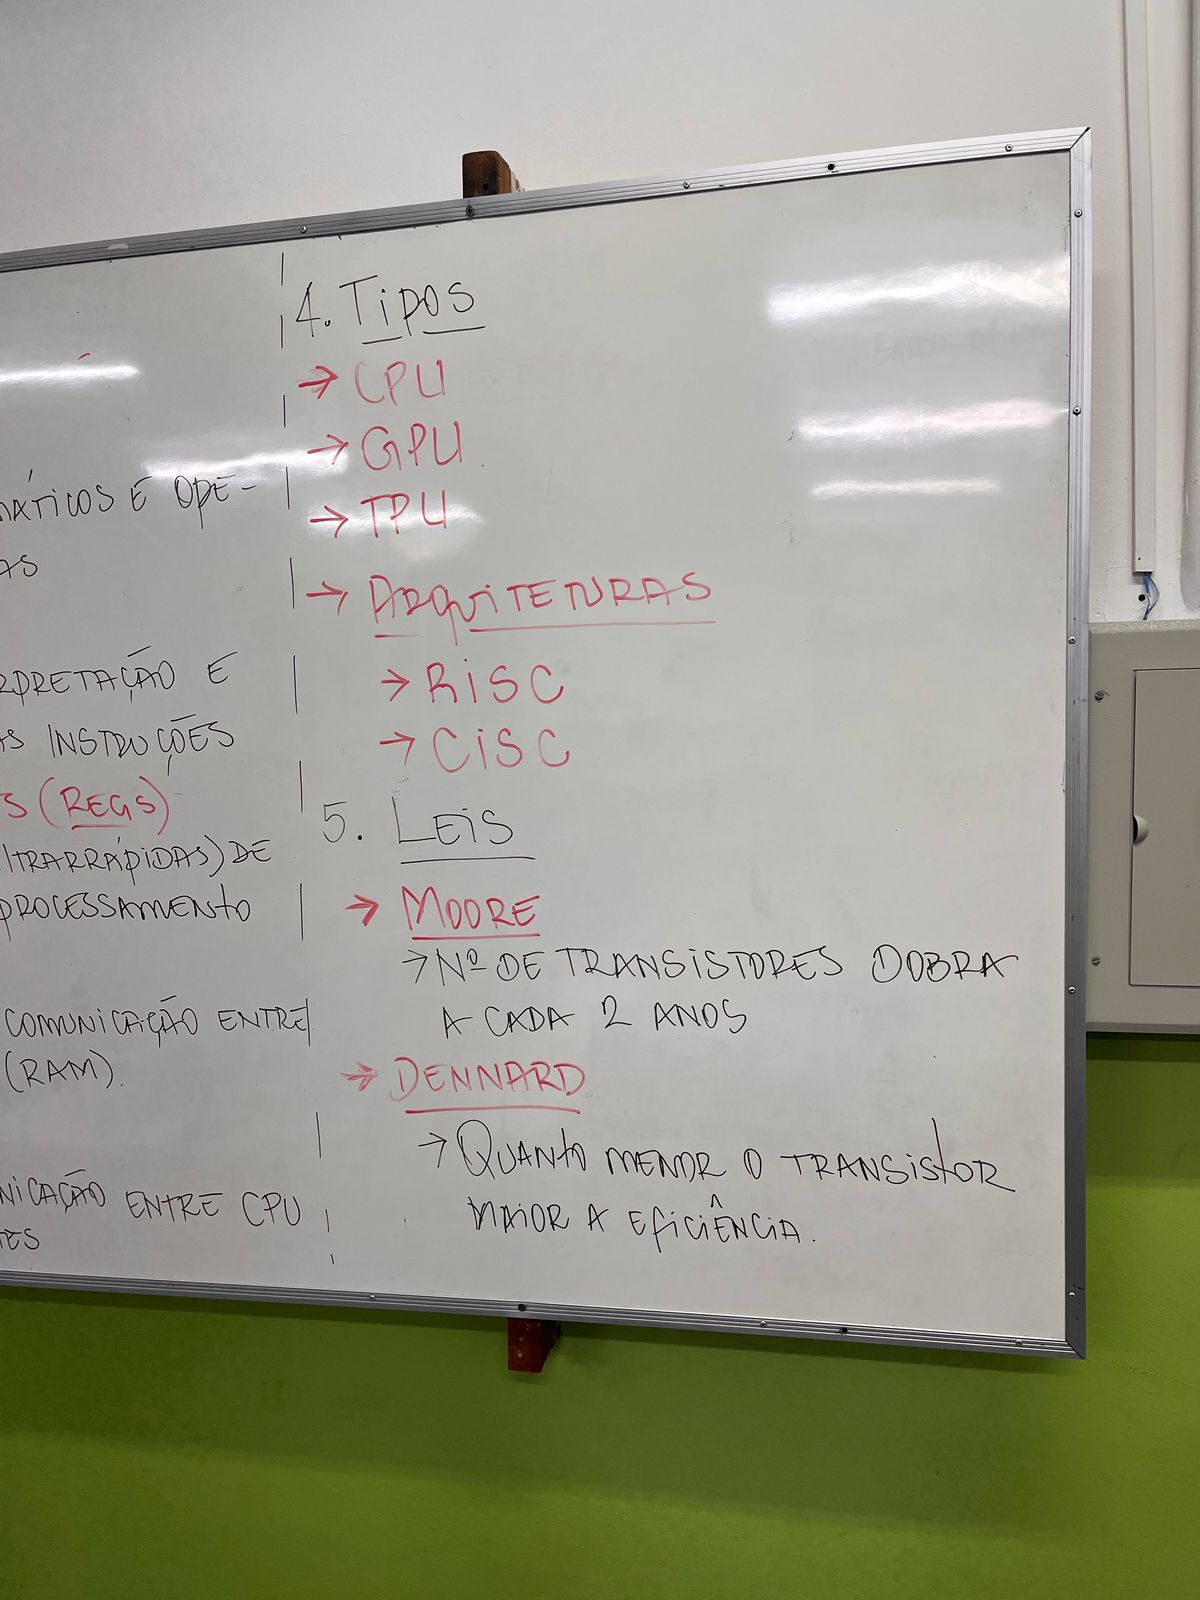 MÁTICOS E OPE-
AS
RPRETAÇÃO E
AS INSTRUÇÕES
S (REGS)
LTRARRÁPIDAS) DE
PROCESSAMENTO
COMUNICAÇÃO ENTRE
(RAM).
NICAÇÃO ENTRE CPU
TES
4. TIPOS
→ CPU
→ GPU
→ TPU
→ ARQUITETURAS
→ RISC
→ CISC
5. LEIS
→ MOORE
→ Nº DE TRANSISTORES DOBRA
A CADA 2 ANOS
→ DENNARD
→ QUANTO MENOR O TRANSISTOR
MAIOR A EFICIÊNCIA.